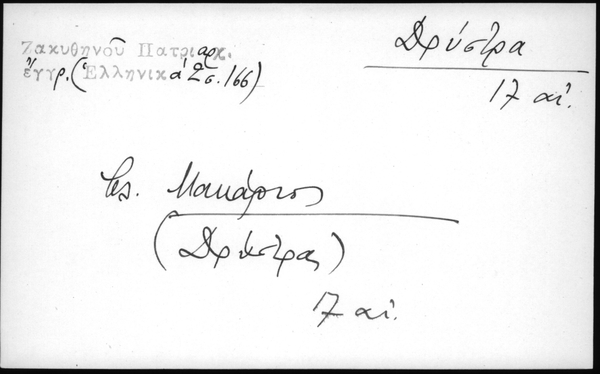 Ζακυθηνοῦ Πατριαρχ.
ἔγγρ. (Ἑλληνικά 2 σ. 166)
Δρύστρα
17 αἰ.
Μακάριος
(Δρύστρας)
17 αἰ.